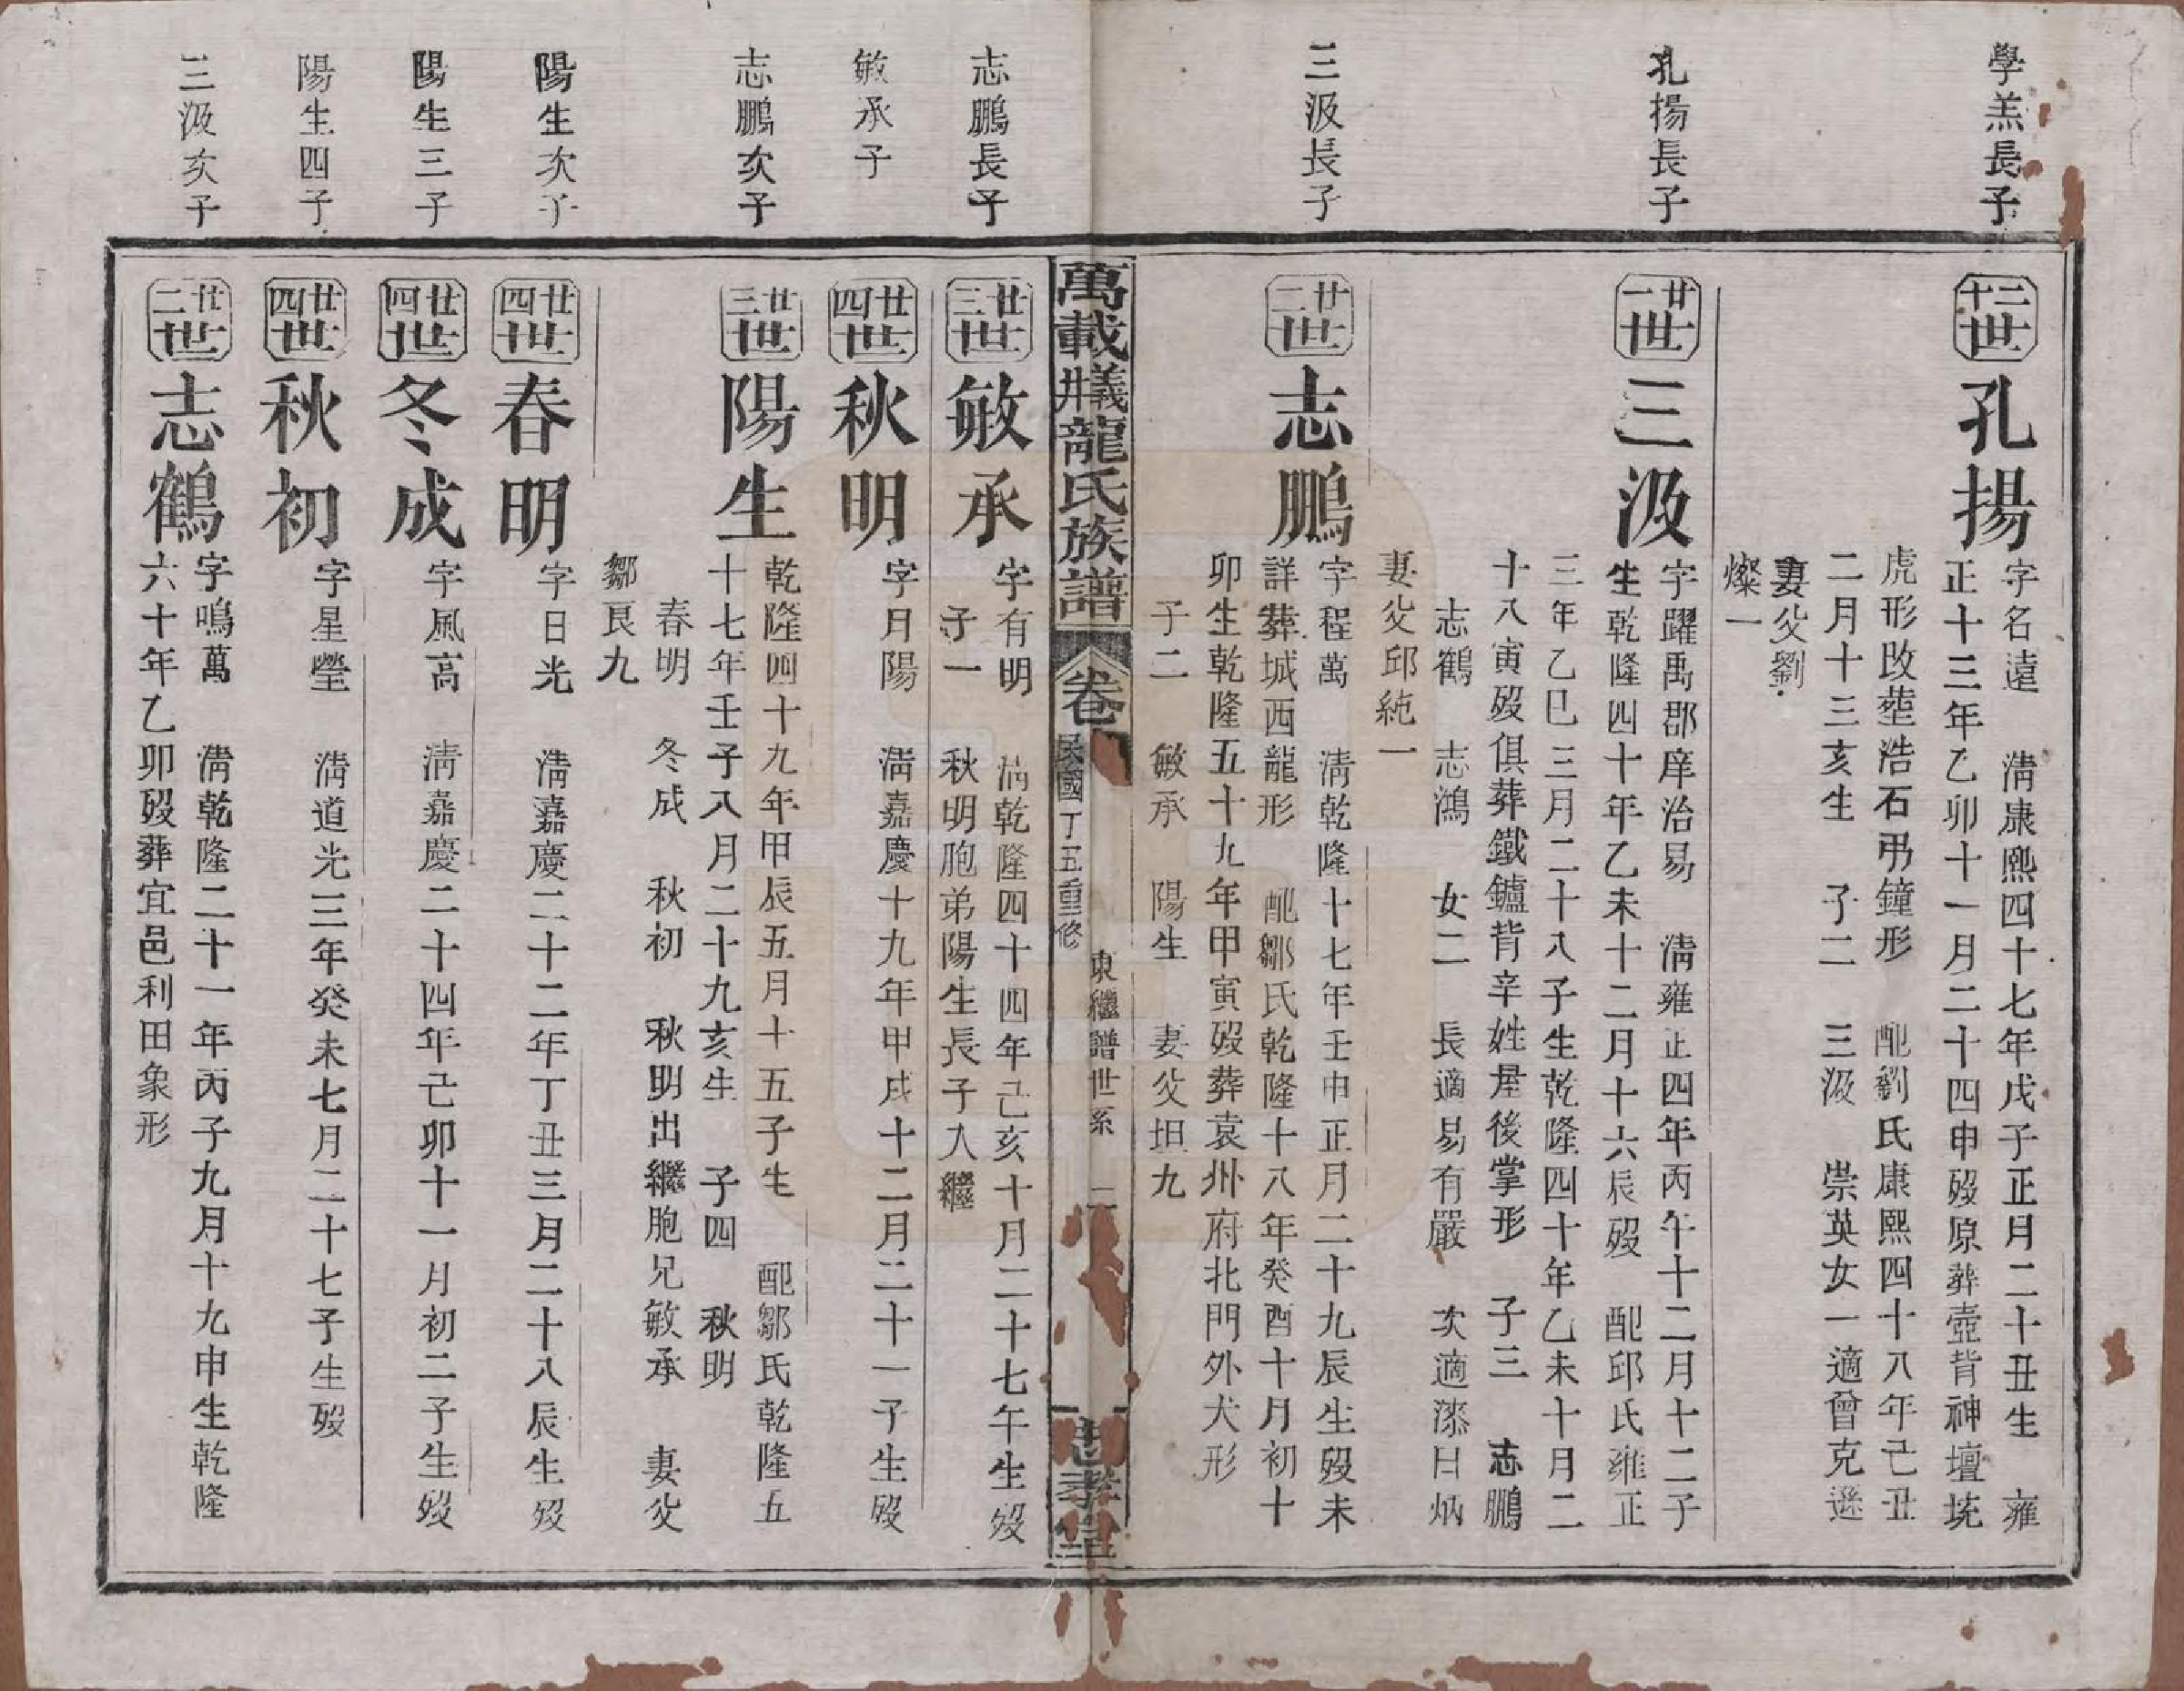 學羔長子
二十世
孔揚
字名遠 清康熙四十七年戊子正月二十丑生 雍
正十三年乙卯十一月二十四申歿原葬壺背神壇坑
虎形改塟浩石弔鐘形 配劉氏康熙四十八年己丑
二月十三亥生 子二 三汲 崇英女一適曾克遜
妻父劉
燦一
孔揚長子
廿一世
三汲
字躍禹郡庠治易 清雍正四年丙午十二月十二子
生乾隆四十年乙未十二月十六辰歿 配邱氏雍正
三年乙巳三月二十八子生乾隆四十年乙未十月二
十八寅歿俱葬鐵鑪背辛姓屋後掌形 子三 志鵬
志鶴 志鴻 女二 長適易有嚴 次適漆日炳
妻父邱純一
三汲長子
廿二世
志鵬
字程萬 清乾隆十七年壬申正月二十九辰生歿未
詳葬城西龍形 配鄒氏乾隆十八年癸酉十月初十
卯生乾隆五十九年甲寅歿葬袁州府北門外犬形
子二 敏承 陽生 妻父坦九
萬載井義龍氏族譜
卷
民國丁丑重修
東繼譜世系 二
忠孝堂
志鵬長子
廿三世
敏承
字有明 清乾隆四十四年己亥十月二十七午生歿
子一 秋明胞弟陽生長子入繼
敏承子
廿四世
秋明
字月陽 清嘉慶十九年甲戌十二月二十一子生歿
志鵬次子
廿三世
陽生
乾隆四十九年甲辰五月十五子生 配鄒氏乾隆五
十七年壬子八月二十九亥生 子四 秋明
春明 冬成 秋初 秋明出繼胞兄敏承 妻父
鄒良九
陽生次子
廿四世
春明
字日光 清嘉慶二十二年丁丑三月二十八辰生歿
陽生三子
廿四世
冬成
字風高 清嘉慶二十四年己卯十一月初二子生歿
陽生四子
廿四世
秋初
字星瑩 清道光三年癸未七月二十七子生歿
三汲次子
廿二世
志鶴
字鳴萬 清乾隆二十一年丙子九月十九申生乾隆
六十年乙卯歿葬宜邑利田象形